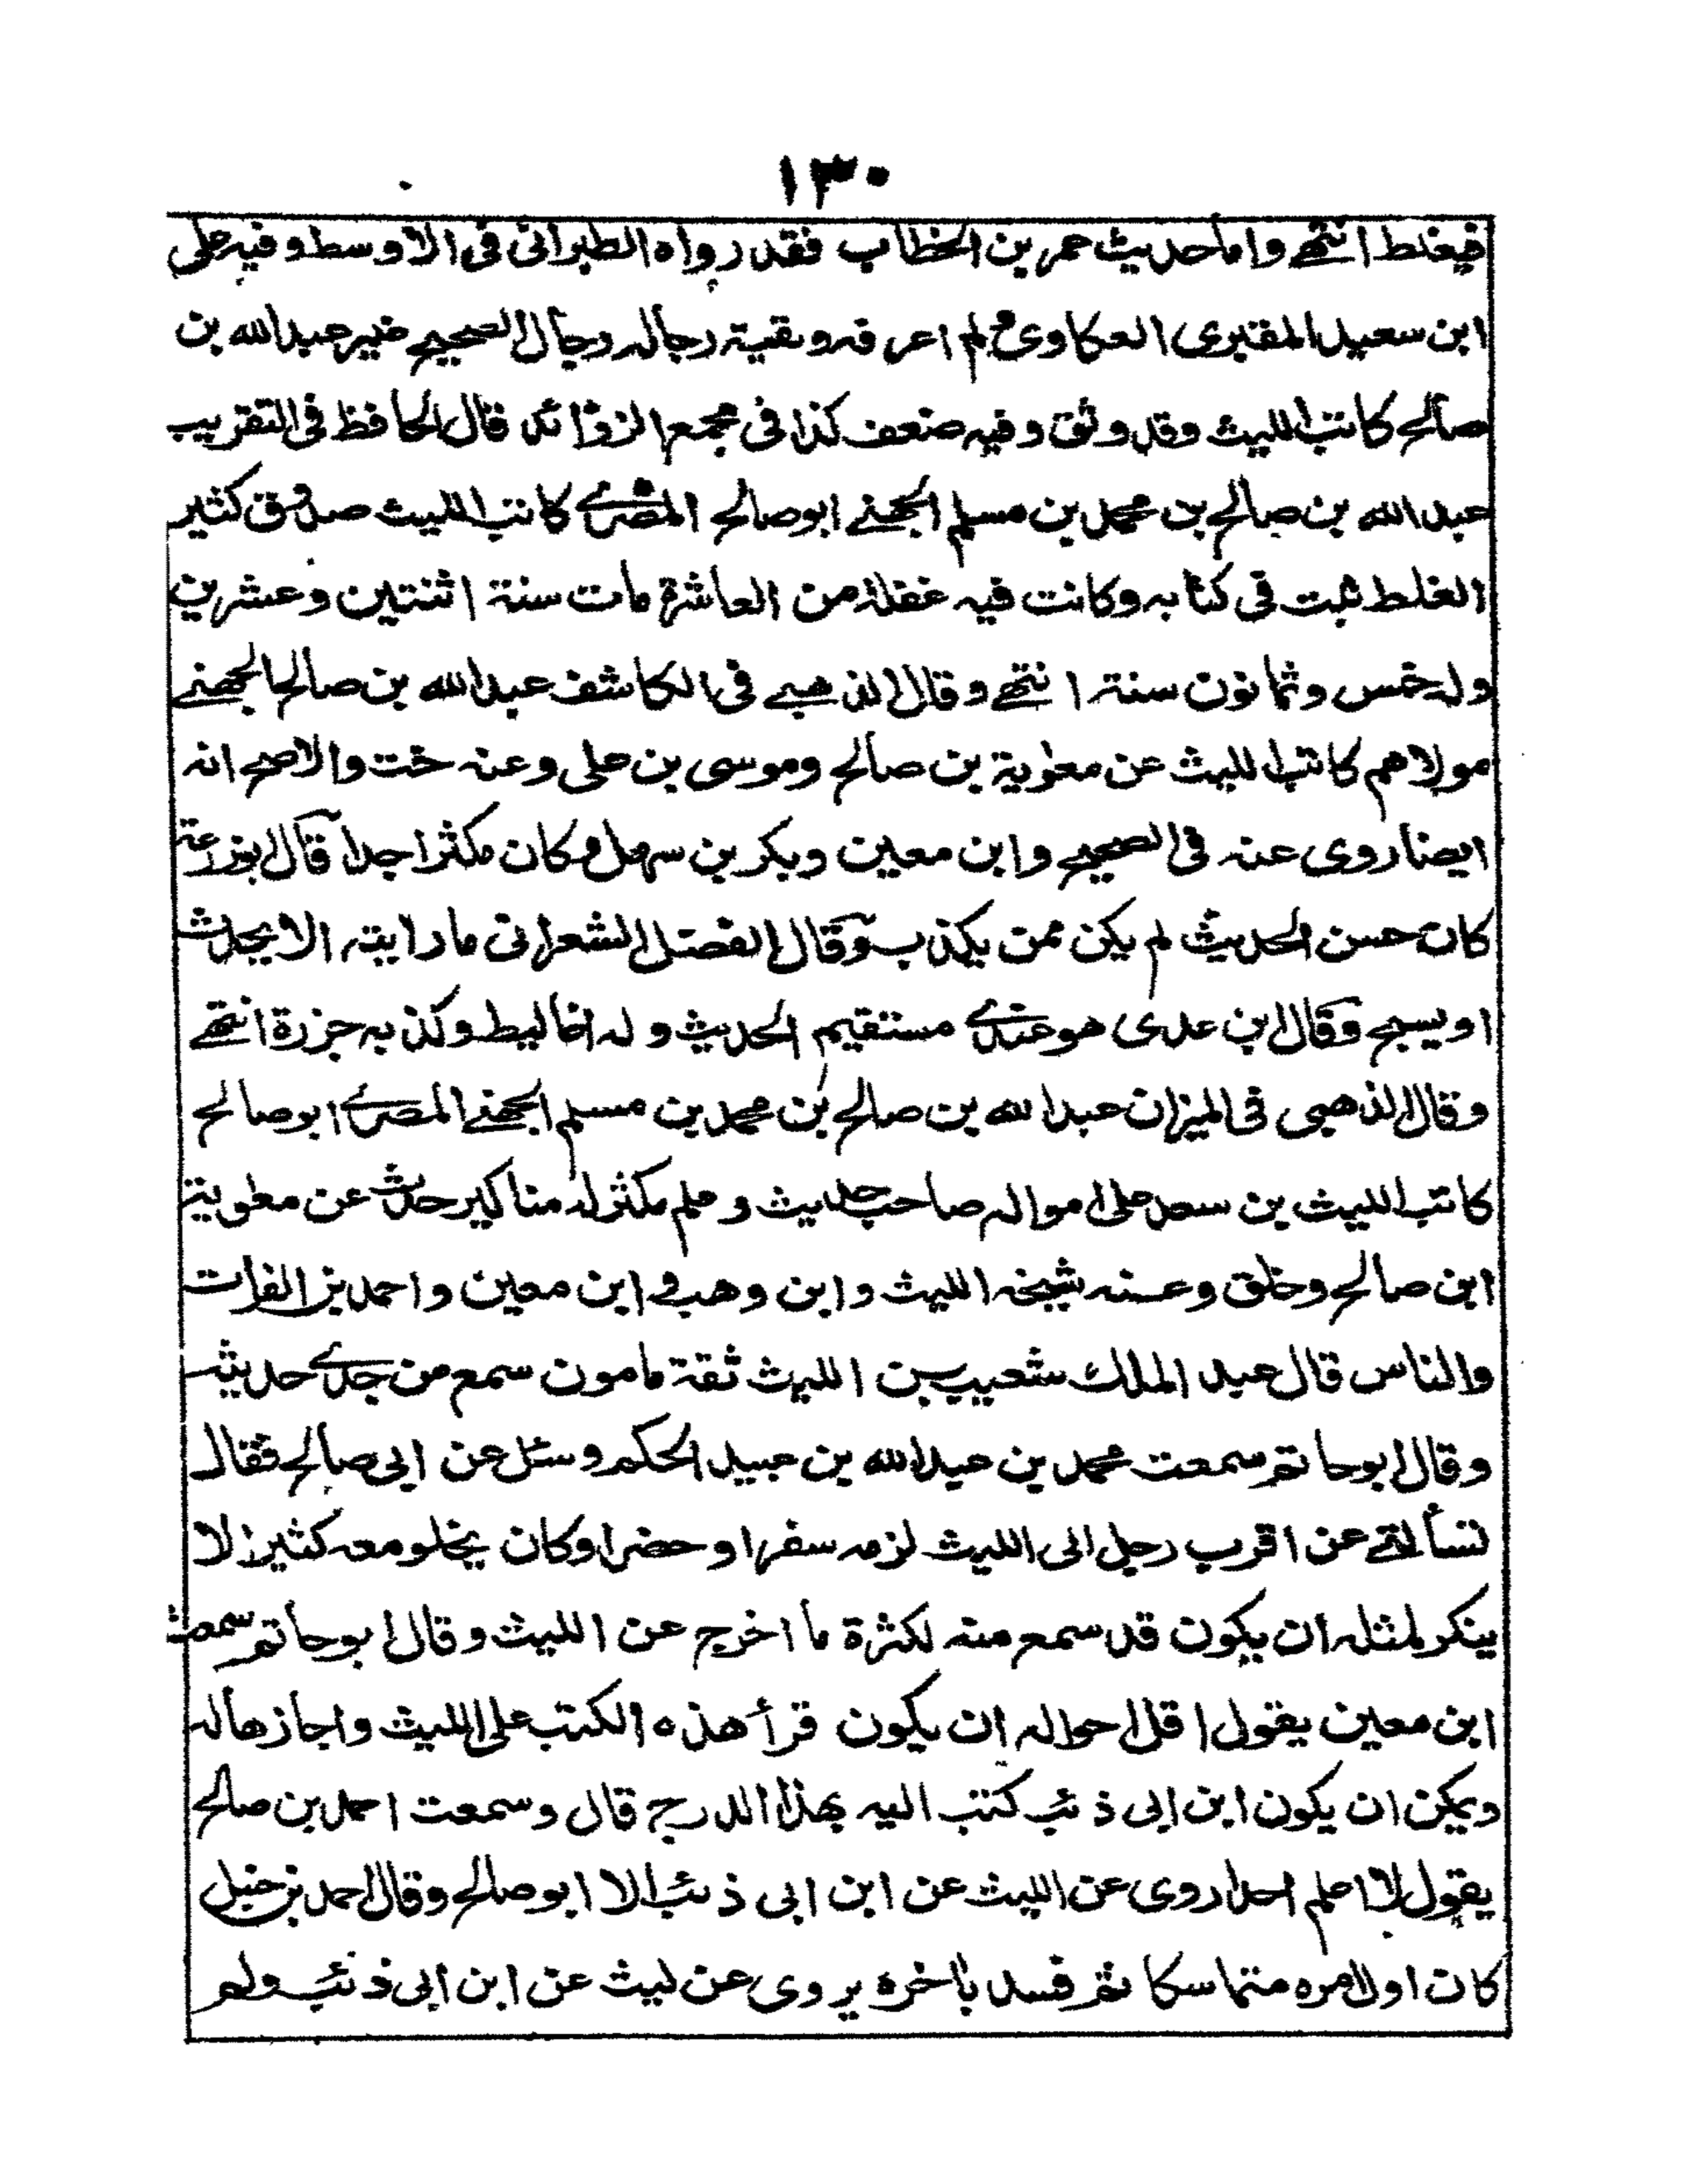 ١٣٠
فيغلط انتهے واما حديث عمر بن الخطاب فقد رواه الطبرانى فى الاوسط وفيه على
ابن سعيد المقبرى العكاوى لم اعرفه وبقية رجاله رجال الصحيح غير عبد الله بن
صالح كاتب الليث وقد وثق وفيه ضعف كذا فى مجمع الزوائد قال الحافظ فى التقريب
عبد الله بن صالح بن محمد بن مسلم الجهنے ابو صالح المصرے كاتب الليث صدوق كثير
الغلط ثبت فى كتابه وكانت فيه غفلة من العاشرة مات سنة اثنتين وعشرين
وله خمس وثمانون سنة انتهے وقال الذهبے فى الكاشف عبد الله بن صالح الجهنے
مولاهم كاتب الليث عن معوية بن صالح وموسى بن على وعنه خت والاصح انه
ايضا روى عنه فى الصحيح وابن معين وبكر بن سهل وكان مكثرا جدا قال ابو زرعة
كان حسن الحديث لم يكن ممن يكذب وقال الفضل الشعرانى ما رايته الا يحدث
او يسبح وقال ابن عدى هو عندے مستقيم الحديث وله اغاليط وكذبه جزرة انتهے
وقال الذهبى فى الميزان عبد الله بن صالح بن محمد بن مسلم الجهنے المصرے ابو صالح
كاتب الليث بن سعد على امواله صاحب حديث وعلم مكثر له مناكير حدث عن معوية
ابن صالح وخلق وعنه شيخه الليث وابن وهب وابن معين واحمد بن الفرات
والناس قال عبد الملك شعيب بن الليث ثقة مامون سمع من جدے حديثه
وقال ابو حاتم سمعت محمد بن عبد الله بن عبيد الحكم وسئل عن ابى صالح فقال
تسألنے عن اقرب رجل الى الليث لزمه سفرا وحضرا وكان يخلو معه كثيرا لا
ينكر لمثله ان يكون قد سمع منه لكثرة ما اخرج عن الليث وقال ابو حاتم سمعت
ابن معين يقول اقل احواله ان يكون قرأ هذه الكتب على الليث واجازها له
ويمكن ان يكون ابن ابى ذئب كتب اليه بهذا الدرج قال وسمعت احمد بن صالح
يقول لا اعلم احدا روى عن الليث عن ابن ابى ذئب الا ابو صالح وقال احمد بن حنبل
كان اول امره متماسكا ثم فسد باخره يروى عن ليث عن ابن ابى ذئب ولم